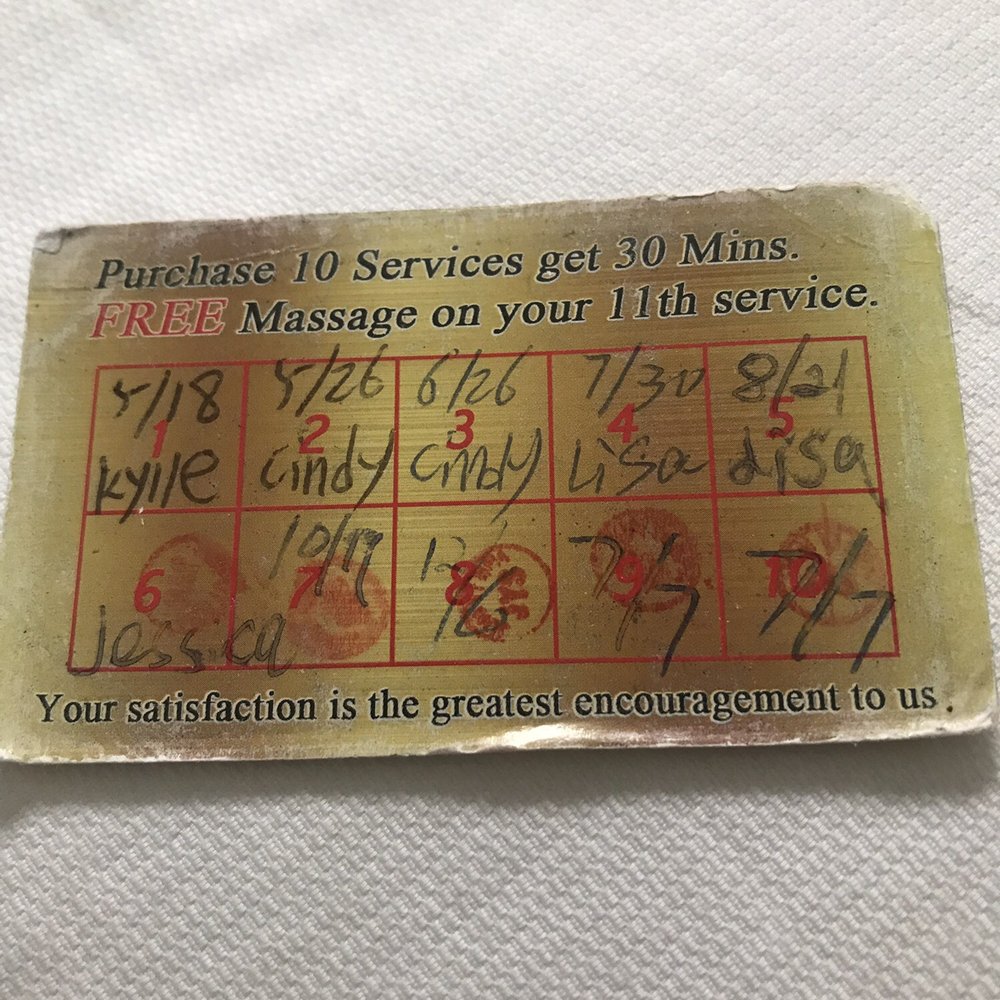 Purchase 10 Services get 30 Mins.
FREE Massage on your 11th service.
5/18 5/26 6/26 7/30 8/21
1 2 3 4 5
Kylie Cindy Cindy Lisa Lisa
10/19 12/6 7/7 7/7
6 7 8 9 10
Jessica
Your satisfaction is the greatest encouragement to us.